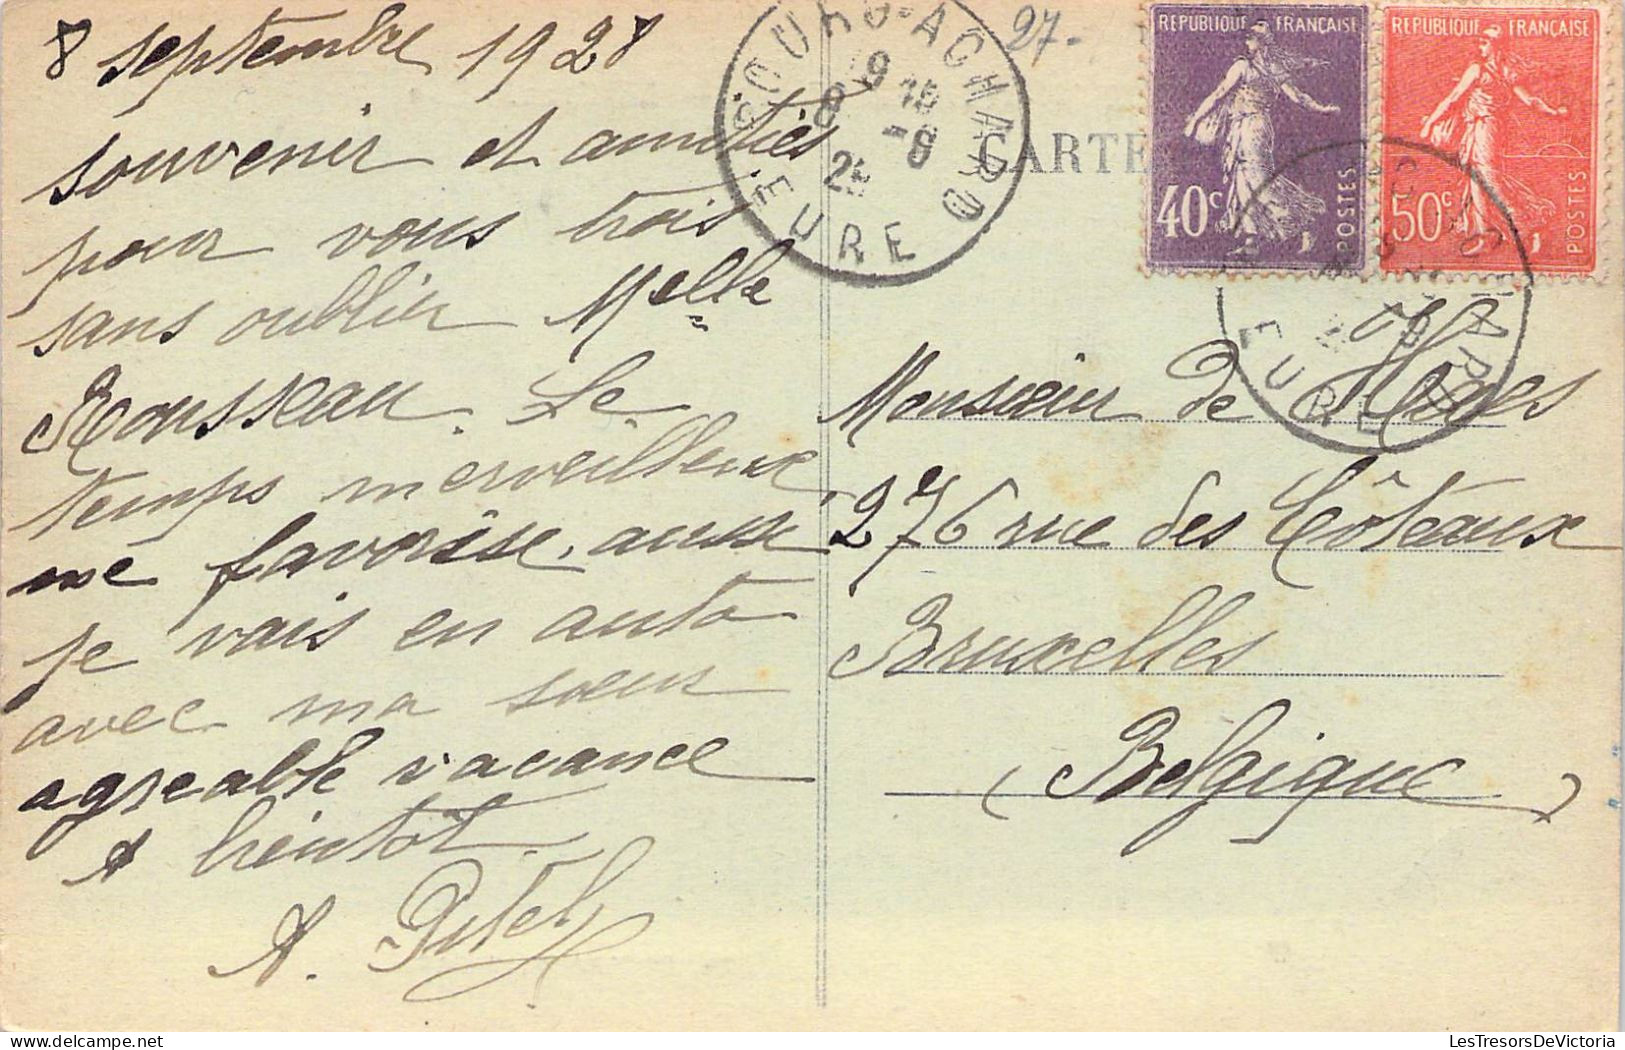 8 septembre 1928
souvenir et amitiés
pour vous trois
sans oublier Melle
Rousseau. Le
temps merveilleux
me favorise, aussi
je vais en auto
avec ma sœur
agreable vacance
A bientot
A. Pitel
27-
BOURG-ACHARD
EURE
CARTE
REPUBLIQUE FRANÇAISE
40c
POSTES
REPUBLIQUE FRANÇAISE
50c
POSTES
EURE
Monsieur de Maes
276 rue des Côteaux
Bruxelles
(Belgique)
LesTresorsDeVictoria